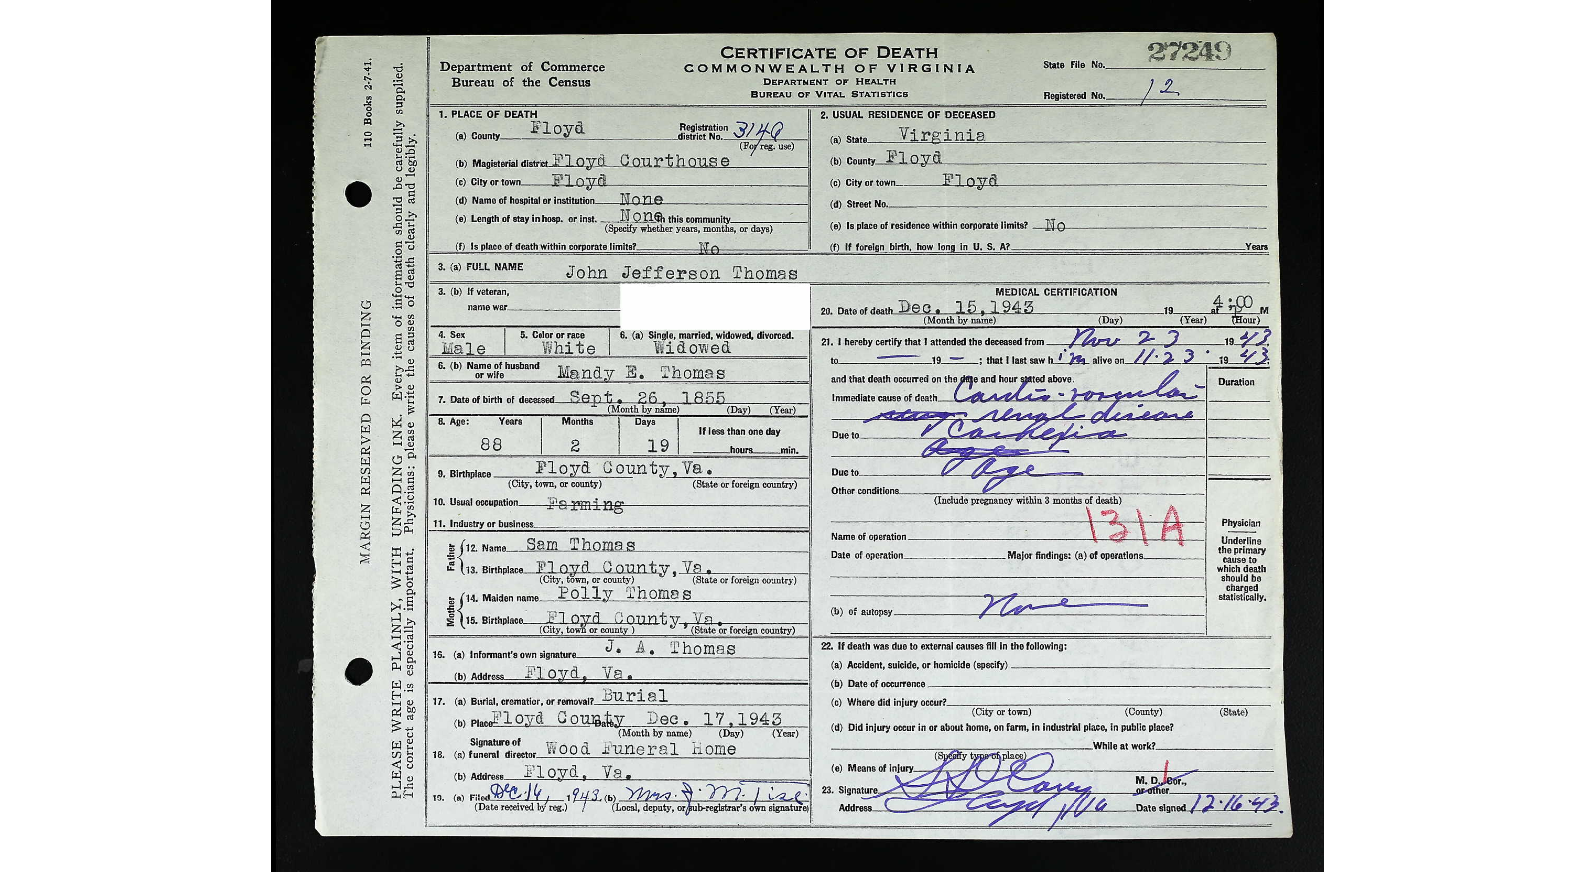 CERTIFICATE OF DEATH
COMMONWEALTH OF VIRGINIA
DEPARTMENT OF HEALTH
BUREAU OF VITAL STATISTICS
Department of Commerce
Bureau of the Census
State File No. 27249
Registered No. 12
110 Books 2-7-41.
MARGIN RESERVED FOR BINDING
PLEASE WRITE PLAINLY, WITH UNFADING INK. Every item of information should be carefully supplied.
The correct age is especially important. Physicians: please write the causes of death clearly and legibly.
1. PLACE OF DEATH
(a) County Floyd Registration district No. 314
(For reg. use)
(b) Magisterial district Floyd Courthouse
(c) City or town Floyd
(d) Name of hospital or institution None
(e) Length of stay in hosp. or inst. None In this community
(Specify whether years, months, or days)
(f) Is place of death within corporate limits? No
2. USUAL RESIDENCE OF DECEASED
(a) State Virginia
(b) County Floyd
(c) City or town Floyd
(d) Street No.
(e) Is place of residence within corporate limits? No
(f) If foreign birth, how long in U. S. A? Years
3. (a) FULL NAME John Jefferson Thomas
3. (b) If veteran,
name war
4. Sex Male
5. Color or race White
6. (a) Single, married, widowed, divorced. Widowed
6. (b) Name of husband or wife Mandy E. Thomas
7. Date of birth of deceased Sept. 26, 1855
(Month by name) (Day) (Year)
8. Age: Years Months Days If less than one day
88 2 19 hours min.
9. Birthplace Floyd County, Va.
(City, town, or county) (State or foreign country)
10. Usual occupation Farming
11. Industry or business
Father
12. Name Sam Thomas
13. Birthplace Floyd County, Va.
(City, town, or county) (State or foreign country)
Mother
14. Maiden name Polly Thomas
15. Birthplace Floyd County, Va.
(City, town or county) (State or foreign country)
16. (a) Informant's own signature J. A. Thomas
(b) Address Floyd, Va.
17. (a) Burial, cremation, or removal? Burial
(b) Place Floyd County Date Dec. 17, 1943
(Month by name) (Day) (Year)
18. (a) Signature of funeral director Wood Funeral Home
(b) Address Floyd, Va.
19. (a) Filed Dec 16, 1943 (b) Mrs. J. M.
(Date received by reg.) (Local, deputy, or sub-registrar's own signature)
MEDICAL CERTIFICATION
20. Date of death Dec. 15, 1943 19 at 4:00 P M
(Month by name) (Day) (Year) (Hour)
21. I hereby certify that I attended the deceased from Nov 23 1943
to — 19 — ; that I last saw him alive on 11-23 1943
and that death occurred on the date and hour stated above.
Duration
Immediate cause of death Cardio-vascular
renal disease
Due to Cachexia
Age
Due to Age
Other conditions
(Include pregnancy within 3 months of death)
131A
Name of operation
Date of operation Major findings: (a) of operations
(b) of autopsy None
Physician
Underline the primary cause to which death should be charged statistically.
22. If death was due to external causes fill in the following:
(a) Accident, suicide, or homicide (specify)
(b) Date of occurrence
(c) Where did injury occur?
(City or town) (County) (State)
(d) Did injury occur in or about home, on farm, in industrial place, in public place?
While at work?
(Specify type of place)
(e) Means of injury
23. Signature M. D., Cor., or other
Address Floyd Va Date signed 12-16-43.